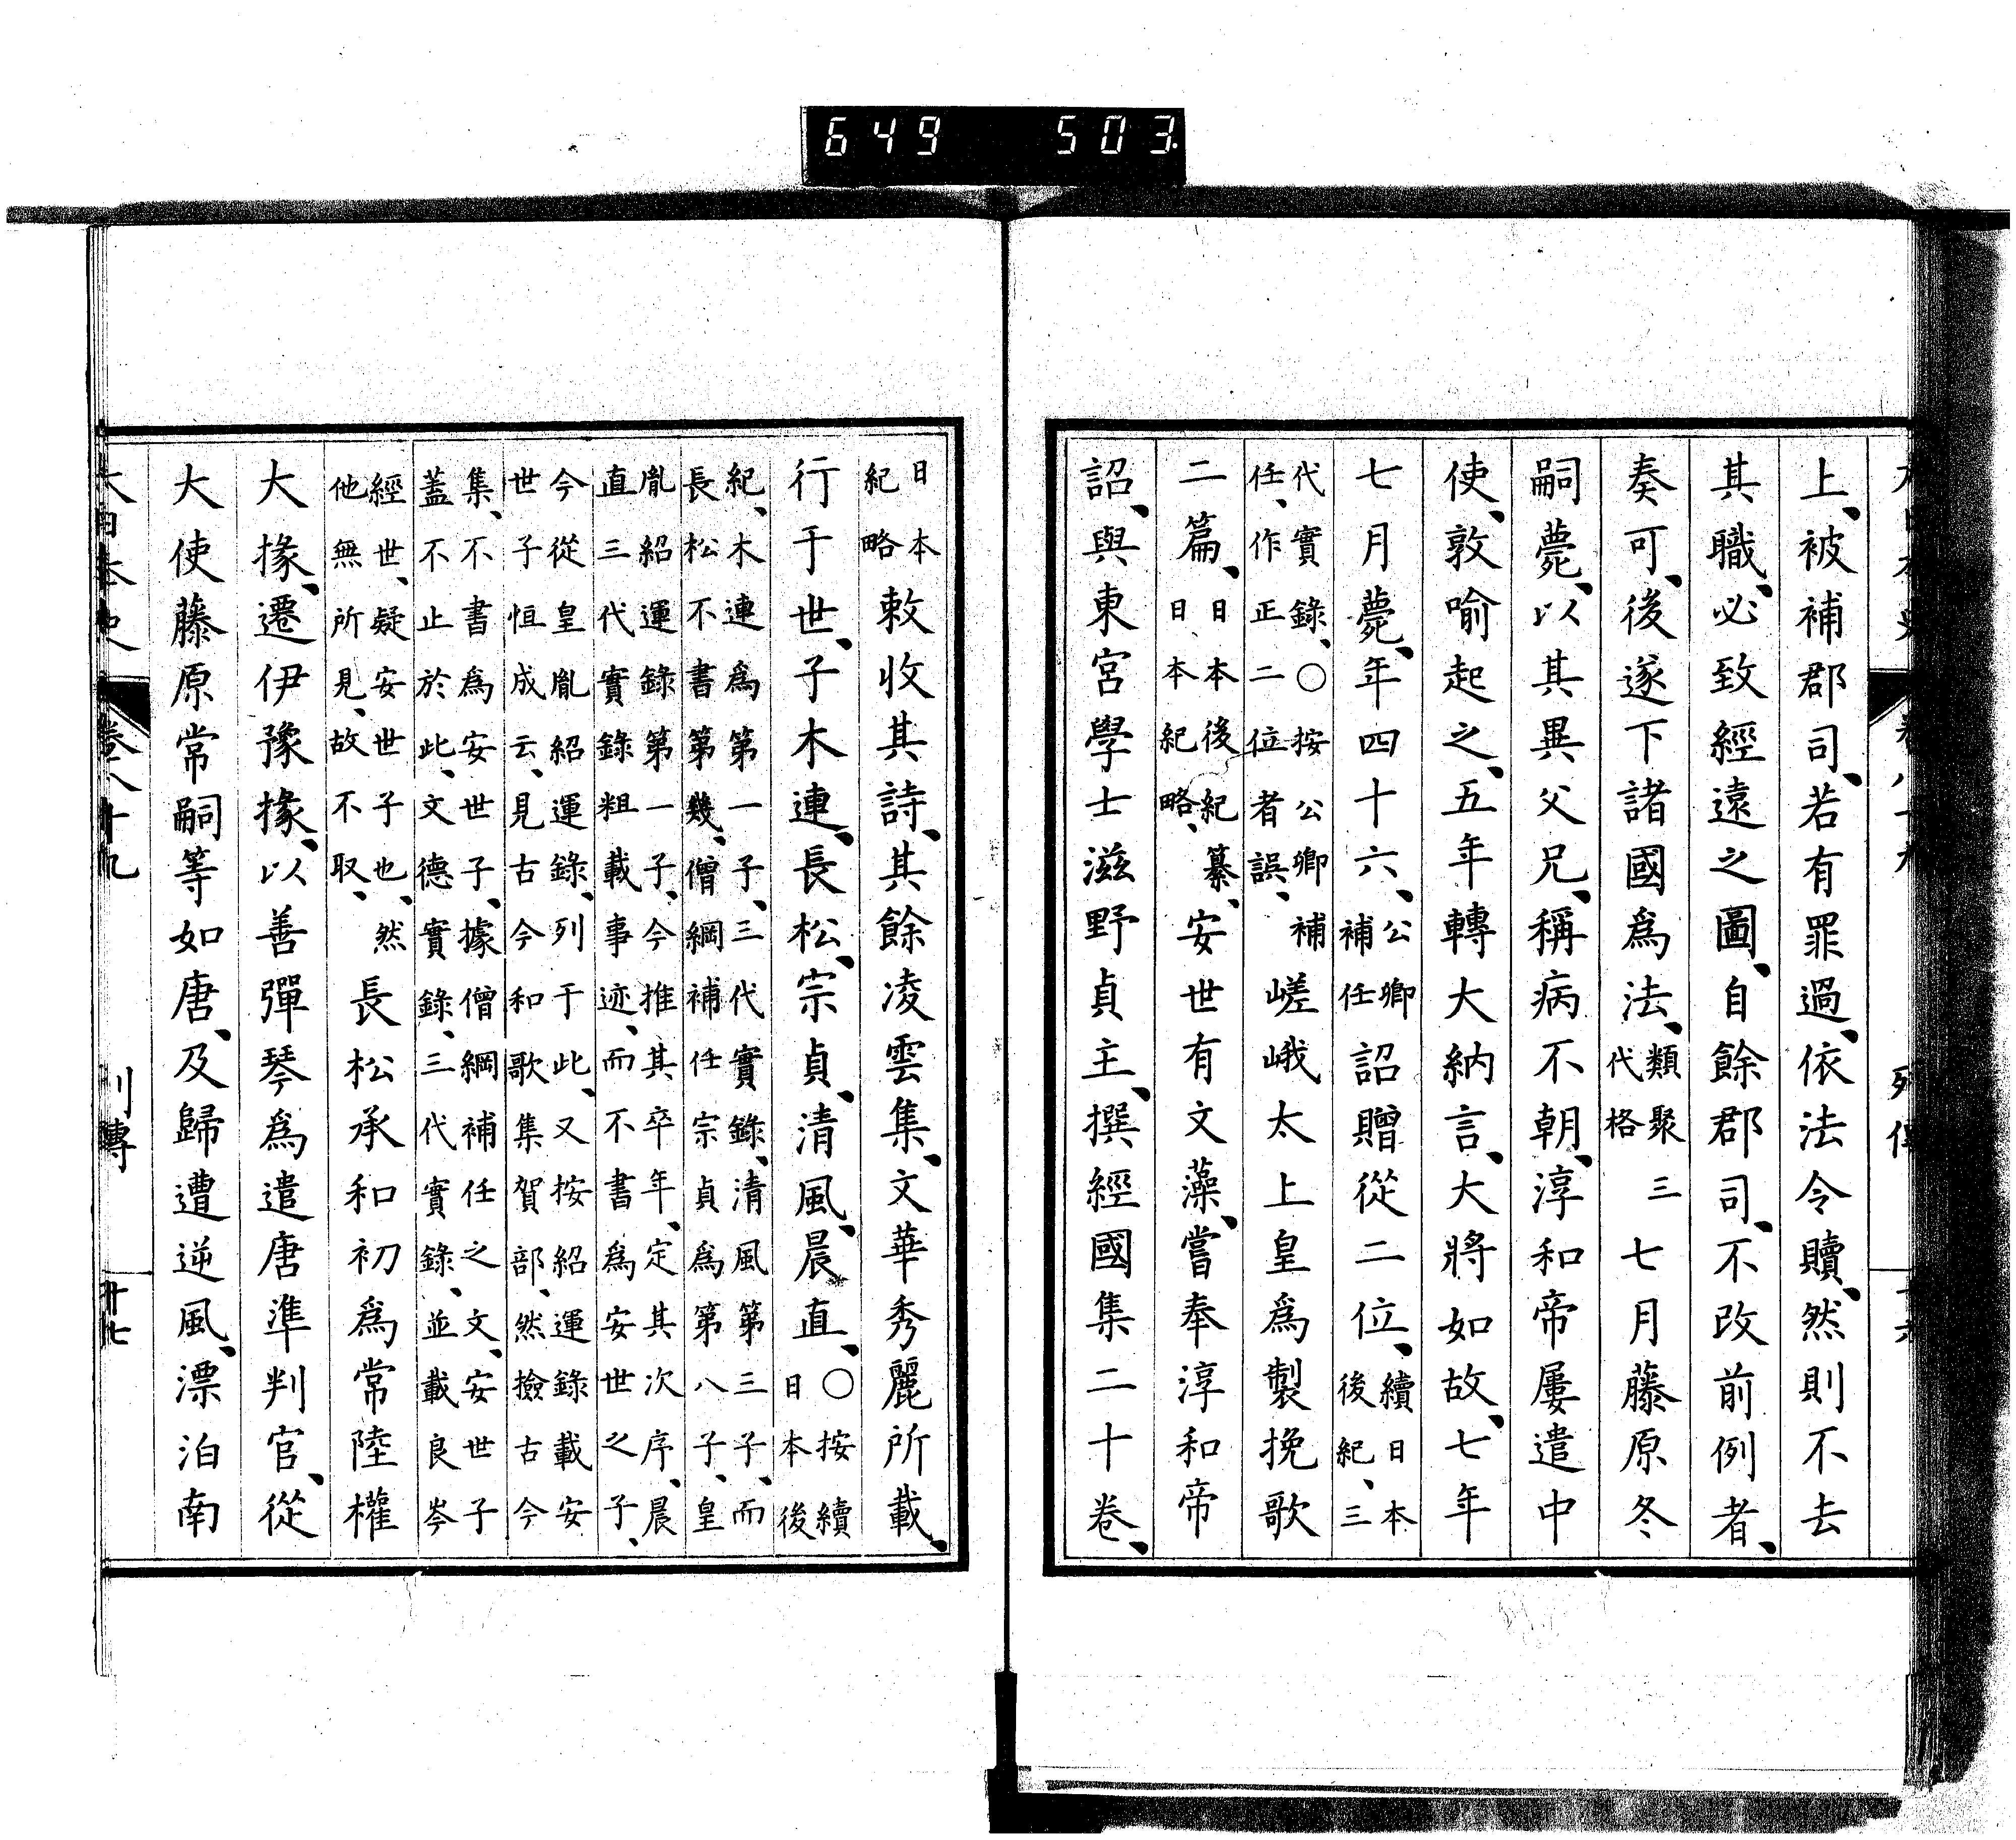 上、被補郡司、若有罪過、依法令贖、然則不去
其職、必致經遠之圖、自餘郡司、不改前例者、
奏可、後遂下諸國爲法、類聚三代格七月藤原冬
嗣薨、以其異父兄、稱病不朝、淳和帝屢遣中
使、敦喻起之、五年轉大納言、大將如故、七年
七月薨、年四十六、公卿補任詔贈從二位、續日本後紀、三
代實錄、○按公卿補任、作正二位者誤、嵯峨太上皇爲製挽歌
二篇、日本後紀纂、日本紀略、安世有文藻、嘗奉淳和帝
詔、與東宮學士滋野貞主、撰經國集二十卷、
日本紀略敕收其詩、其餘凌雲集、文華秀麗所載、
行于世、子木連、長松、宗貞、清風、晨直、○按續日本後
紀、木連爲第一子、三代實錄、清風第三子、而長松不書第幾、僧綱補任宗貞爲第八子、皇
胤紹運錄第一子、今推其卒年、定其次序、晨直三代實錄粗載事迹、而不書爲安世之子、
今從皇胤紹運錄、列于此、又按紹運錄載安世子恒成云、見古今和歌集賀部、然撿古今
集、不書爲安世子、據僧綱補任之文、安世子蓋不止於此、文德實錄、三代實錄、並載良岑
經世、疑安世子也、然他無所見、故不取、長松承和初爲常陸權
大掾、遷伊豫掾、以善彈琴爲遣唐準判官、從
大使藤原常嗣等如唐、及歸遭逆風、漂泊南
大日本史 卷八十九 列傳 廿七
649 503